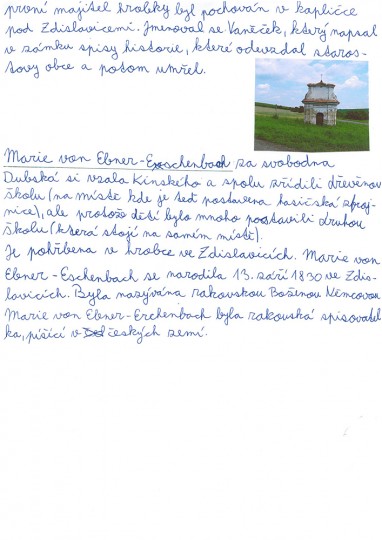 první majitel hrobky byl pochován v kapličce
pod Zdislavicemi. Jmenoval se Vaněček, který napsal
v zámku spisy historie, které odevzdal staros-
tovy obce a potom umřel.
Marie von Ebner-Eschenbach za svobodna
Dubská si vzala Kinského a spolu zřídili dřevěnou
školu (na místě kde je teď postavena hasičská zbroj-
nice), ale protože dětí bylo mnoho postavili druhou
školu (která stojí na samém místě).
Je pohřbena v hrobce ve Zdislavicích. Marie von
Ebner-Eschenbach se narodila 13. září 1830 ve Zdis-
lavicích. Byla nazývána rakouskou Boženou Němcovou
Marie von Ebner-Erchenbach byla rakouská spisovatel
ka, píšící v českých zemí.